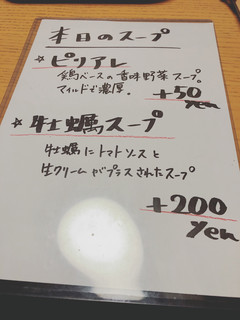 本日のスープ
☆ピリアレ
鶏ベースの香味野菜スープ。
マイルドで濃厚。
+50
yen
☆牡蠣スープ
牡蠣にトマトソースと
生クリームがプラスされたスープ
+200
yen